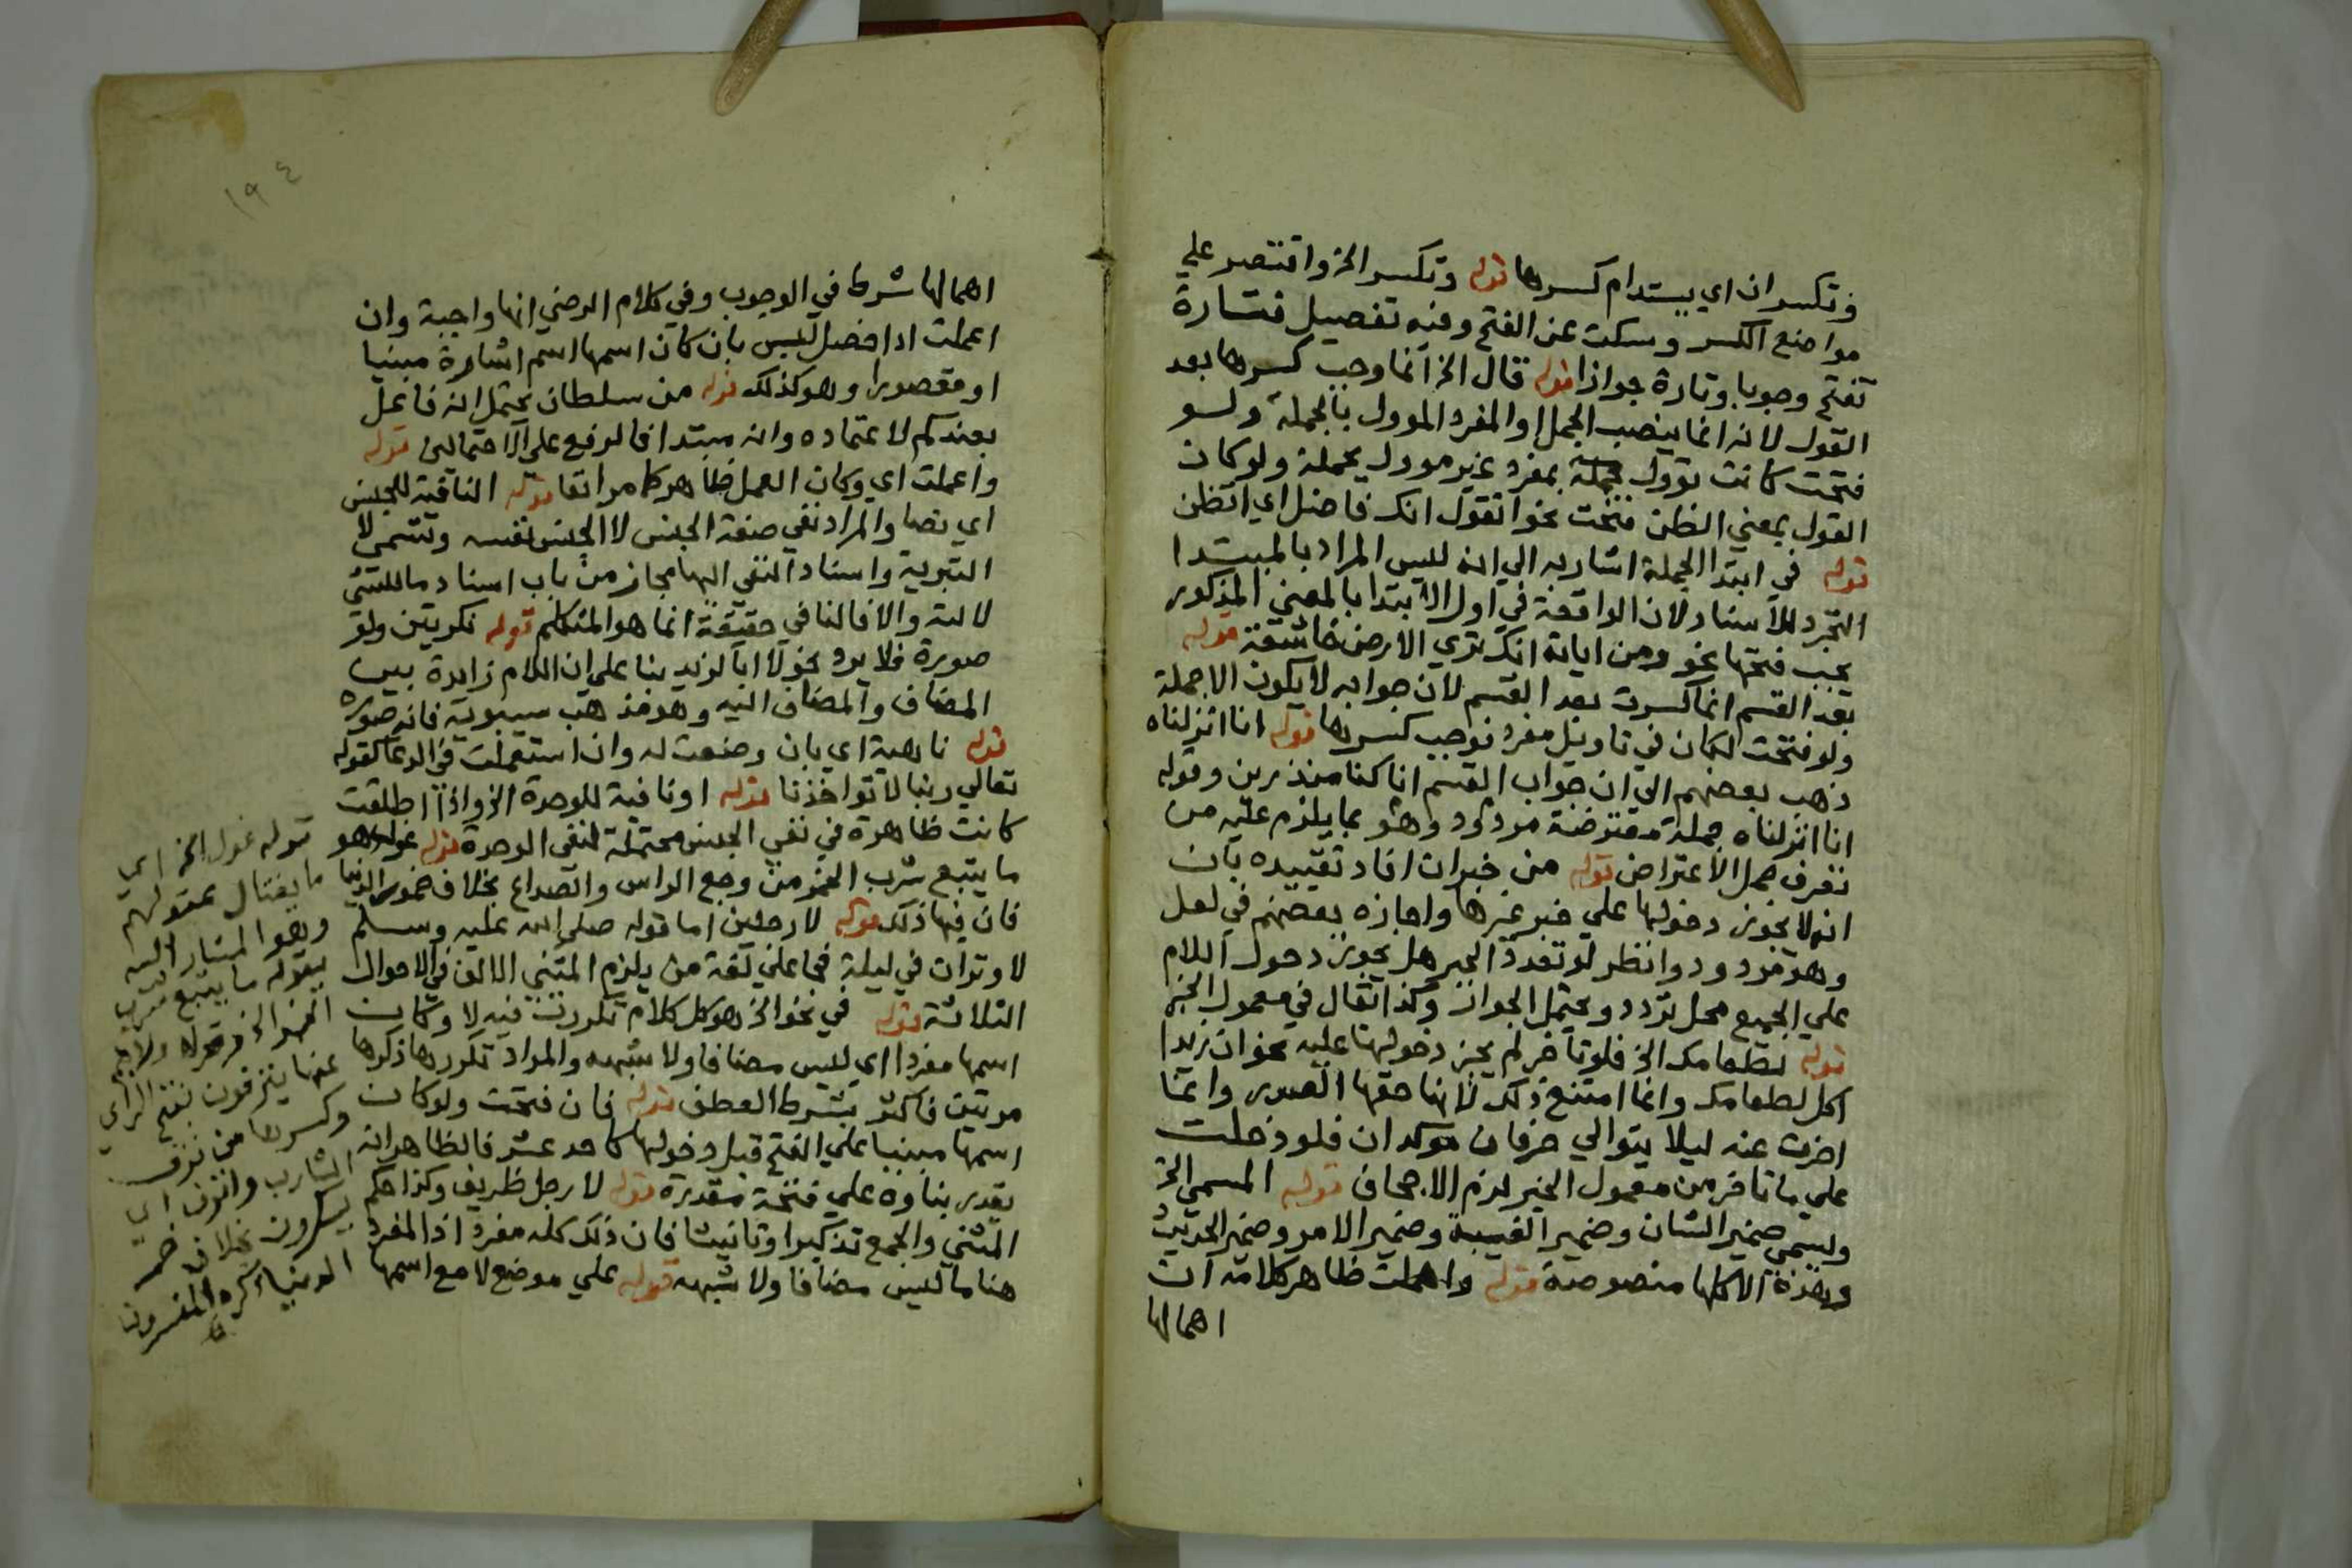 وتكسر ان اي يستدام كسرها قوله وتكسر الخ واقتصر علي
مواضع الكسر وسكت عن الفتح وفيه تفصيل فتارة
تفتح وجوبا وتارة جوازا قوله قال الخ انما وجب كسرها بعد
القول لانه انما ينصب الجمل او المفرد الموول بالجملة ولو
فتحت كانت توول جملة بمفرد غير موول بجملة ولو كان
القول بمعني الظن فتحت نحو اتقول انك فاضل اي اتظن
قوله في ابتدا الجملة اشار به الي انه ليس المراد بالمبتدا
التجرد للاسناد لان الواقعة في اول الابتدا بالمعني المذكور
يجب فتحها نحو ومن اياته انك تري الارض خاشعة قوله
بعد القسم انما كسرت بعد القسم لان جوابه لا يكون الا جملة
ولو فتحت لكان في تاويل مفرد فوجب كسرها قوله انا انزلناه
ذهب بعضهم الي ان جواب القسم انا كنا منذرين وقوله
انا انزلناه جملة معترضة مردود وهو بما يلزم عليه من
تعرف محل الاعتراض قوله من خبر ان افاد تقييده بان
انه لا يجوز دخولها علي خبر غيرها واجازه بعضهم في لعل
وهو مردود وانظر لو تعدد الخبر هل يجوز دخول اللام
علي الجميع محل تردد ويحتمل الجواز وكذا يقال في معمول الخبر
قوله لطعامك الخ فلو تاخر لم يجز دخولها عليه نحو ان زيدا
اكل لطعامك وانما امتنع ذلك لانها حقها الصدر وانما
اخرت عنه ليلا يتوالي حرفان موكدان فلو دخلت
علي ما تاخر من معمول الخبر لزم الاجحاف قوله المسمي الخ
ويسمي ضمير الشان وضمير القصة وضمير الامر وضمير الحديث
وهذه الاكلها منصوصة قوله واهملت ظاهر كلامه ان
اهمالها
١٩٤
اهمالها شرط في الوجوب وفي كلام الرضي انها واجبة وان
اعملت اذا حصل لبس بان كان اسمها اسم اشارة مبنيا
او مقصورا وهو كذلك قوله من سلطان يحتمل انه فاعل
بعندكم لاعتماده وانه مبتدا فالرفع علي الاحتمالين قوله
واعملت اي وكان العمل ظاهرا كما مر انفا قوله النافية للجنس
اي نصا والمراد نفي صفة الجنس لا الجنس نفسه وتسمي لا
التبرية واسناد النفي اليها مجاز من باب اسناد ما للشي
لالته والا فالنافي حقيقة انما هو المتكلم قوله نكرتين ولو
صورة فلا يرد نحو لا ابا لزيد بنا علي ان اللام زايدة بين
المضاف والمضاف اليه وهو مذهب سيبويه فانه صورة
قوله ناهية اي بان وضعت له وان استعملت في الدعا كقوله
تعالي ربنا لا تواخذنا قوله او نافية للوحدة الخ واذا اطلقت
كانت ظاهرة في نفي الجنس محتملة لنفي الوحدة قوله غول هو
ما يتبع شرب الخمر من وجع الراس والصداع بخلاف خمور الدنيا
فان فيها ذلك قوله لا رجلين اما قوله صلي الله عليه وسلم
لا وتران في ليلة فجا علي لغة من يلزم المثني الالف في الاحوال
الثلاثة قوله في نحو الخ هو كل كلام تكررت فيه لا وكان
اسمها مفردا اي ليس مضافا ولا شبهه والمراد تكررها ذكرها
مرتين فاكثر بشرط العطف قوله فان فتحت ولو كان
اسمها مبنيا علي الفتح قبل دخولها كاحد عشر فالظاهر انه
يقدر بناوه علي فتحة مقدرة قوله لا رجل ظريف وكذا حكم
المثني والجمع تذكيرا وتانيثا فان ذلك كله مفرد اذ المفرد
هنا ما ليس مضافا ولا شبهه قوله علي موضع لا مع اسمها
قوله غول الخ اي
ما يغتال عقولهم
وهو المشار اليه
بقوله ما يتبع شرب
الخمر الخ قوله ولا هم
عنها ينزفون بفتح الزاي
وكسرها من نزف
الشارب وانزف اي
يسكرون بخلاف خمر
الدنيا ذكره المفسرون